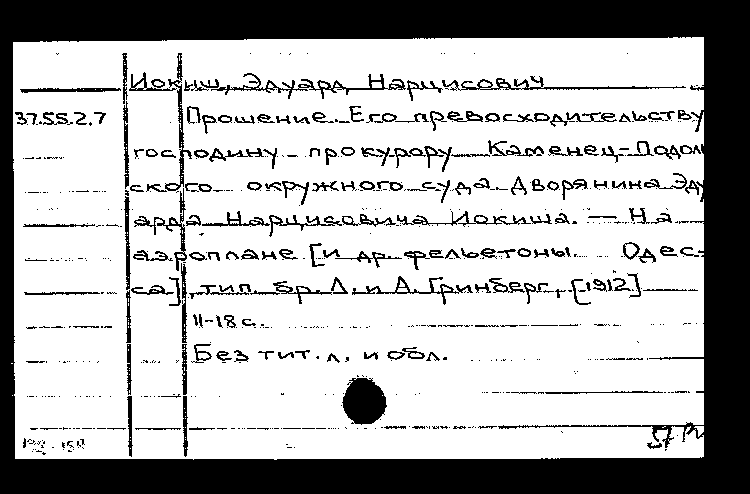 Иокиш, Эдуард Нарцисович
37.55.2.7 Прошение Его превосходительству
господину прокурору Каменец-Подоль
ского окружного суда Дворянина Эду
арда Нарцисовича Иокиша. — На
аэроплане [и др. фельетоны. Одес-
са], тип. бр. Л. и А. Гринберг, [1912]
11-18 с.
Без тит. л. и обл.
57